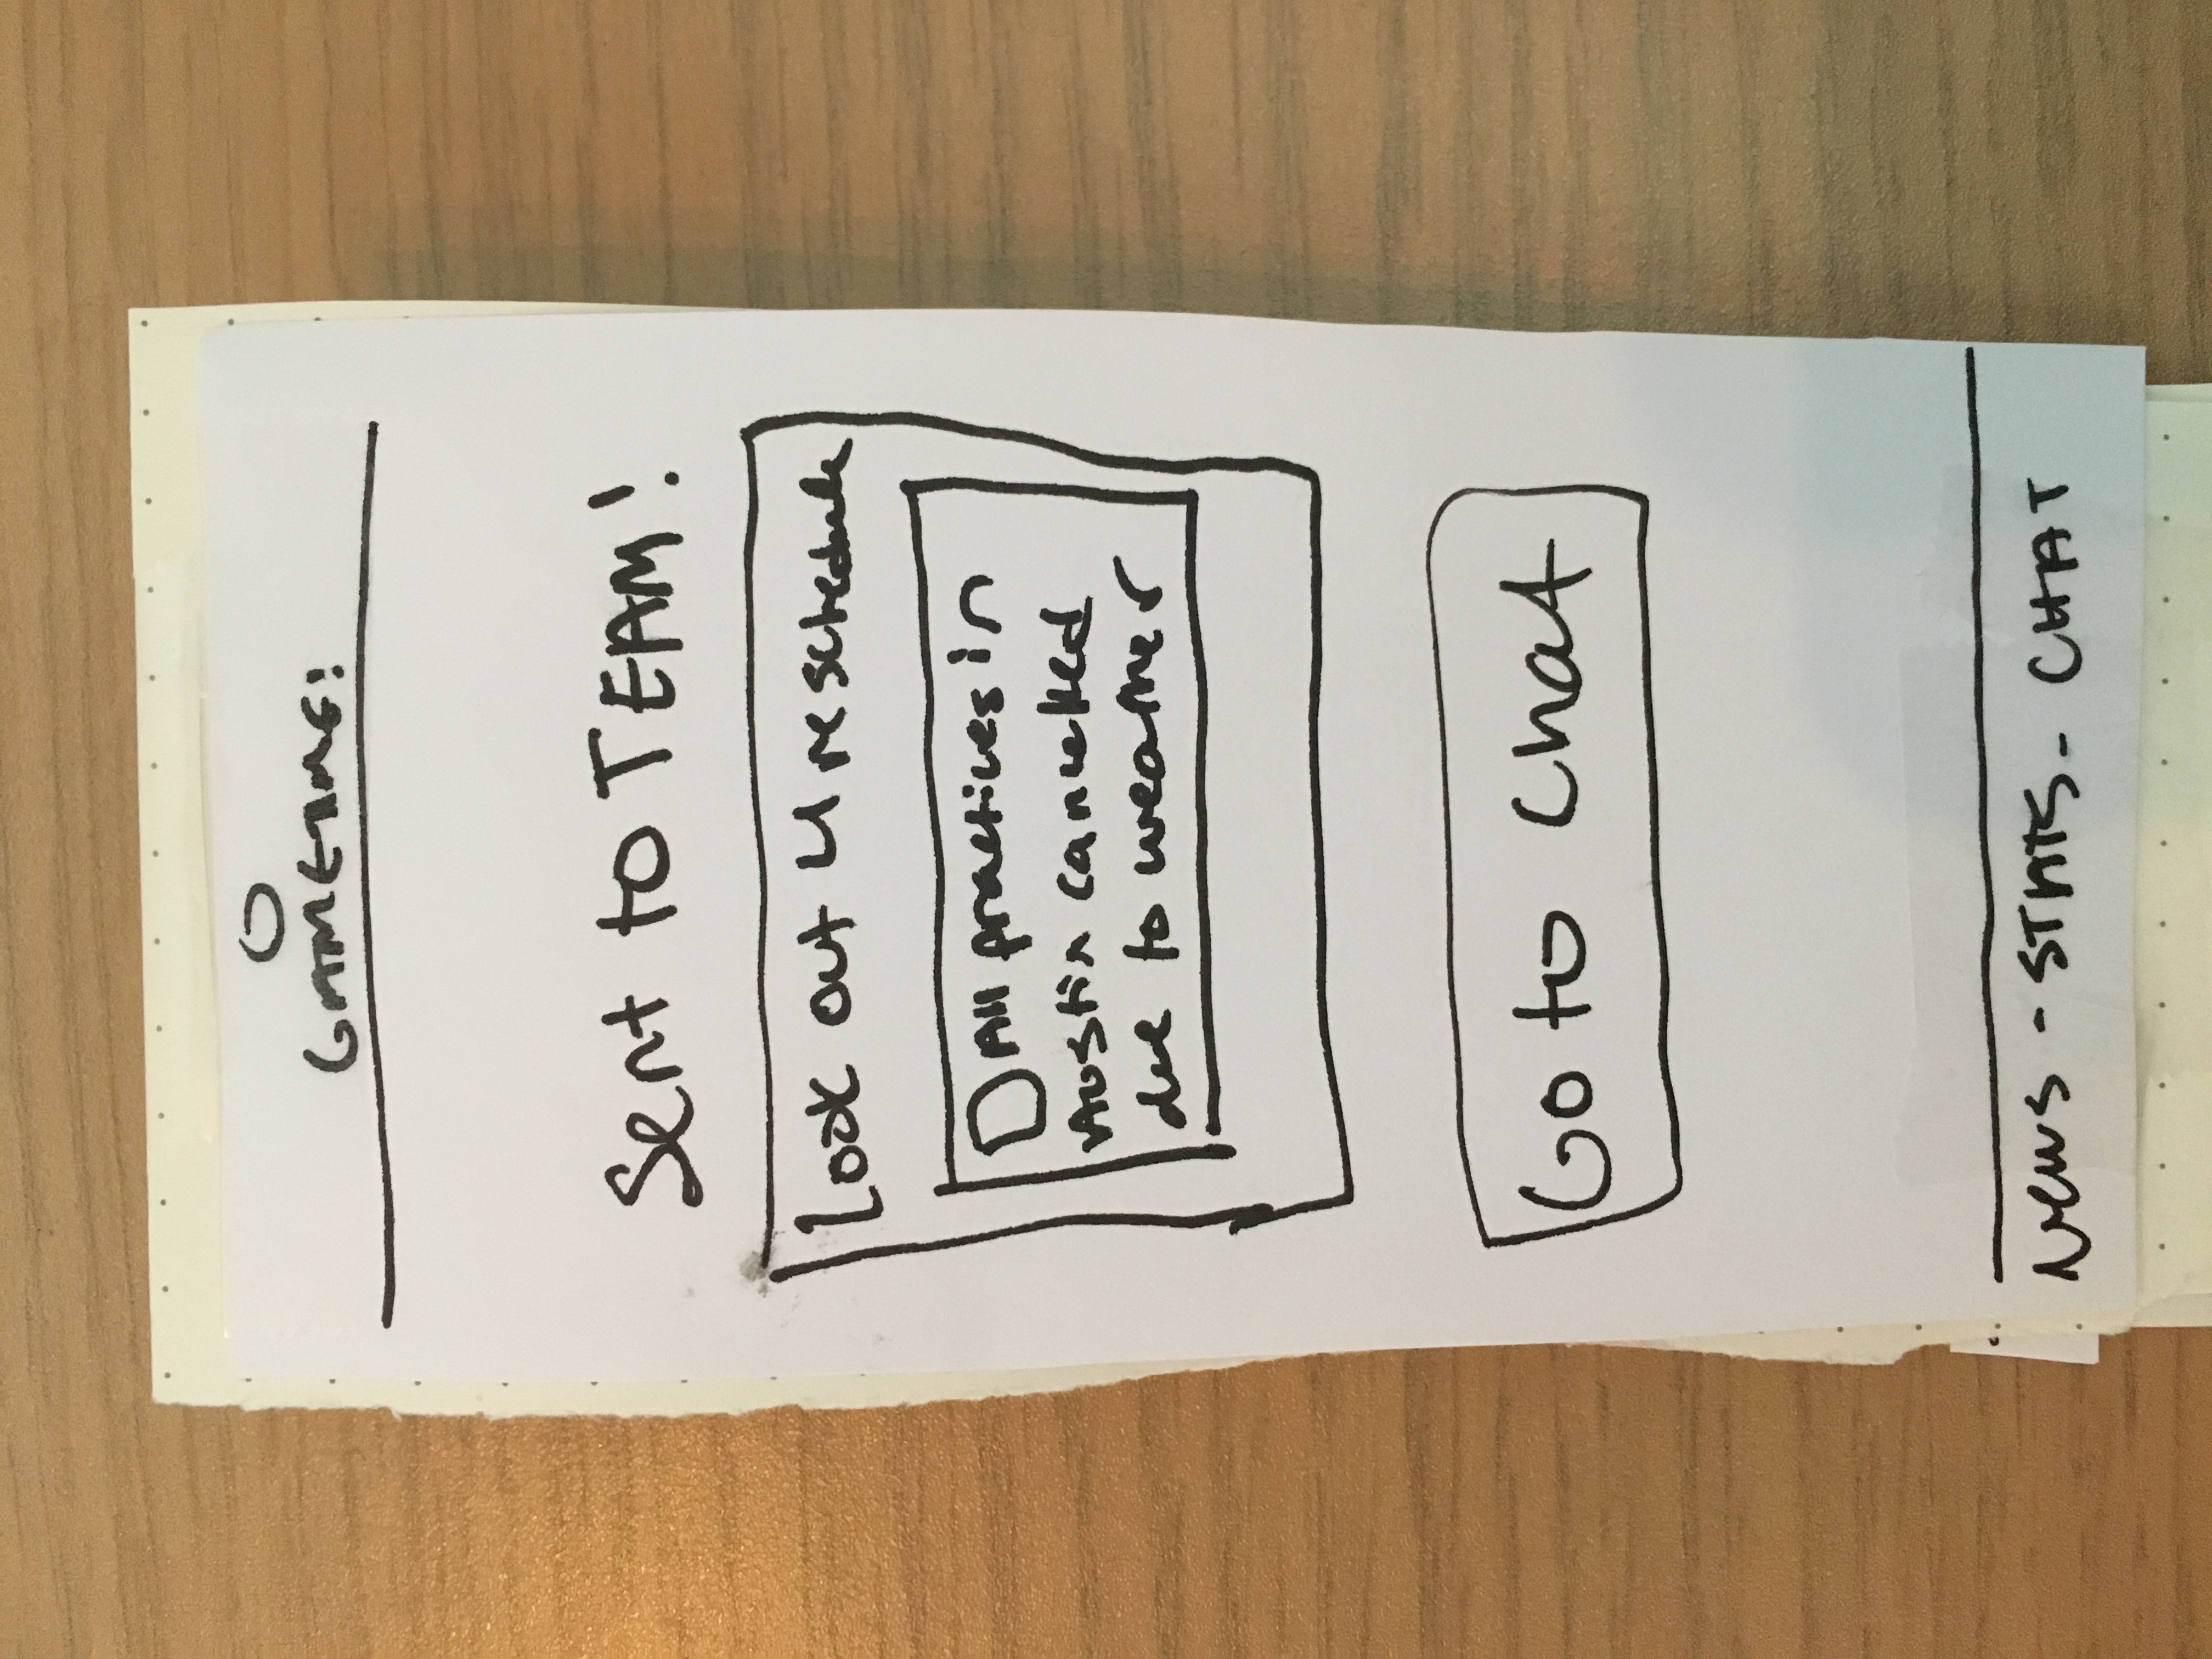 GAMETIME!
Sent to TEAM!
Look out 4 reschedule
All practices in
Austin cancelled
due to weather
Go to Chat
News - STATS - CHAT